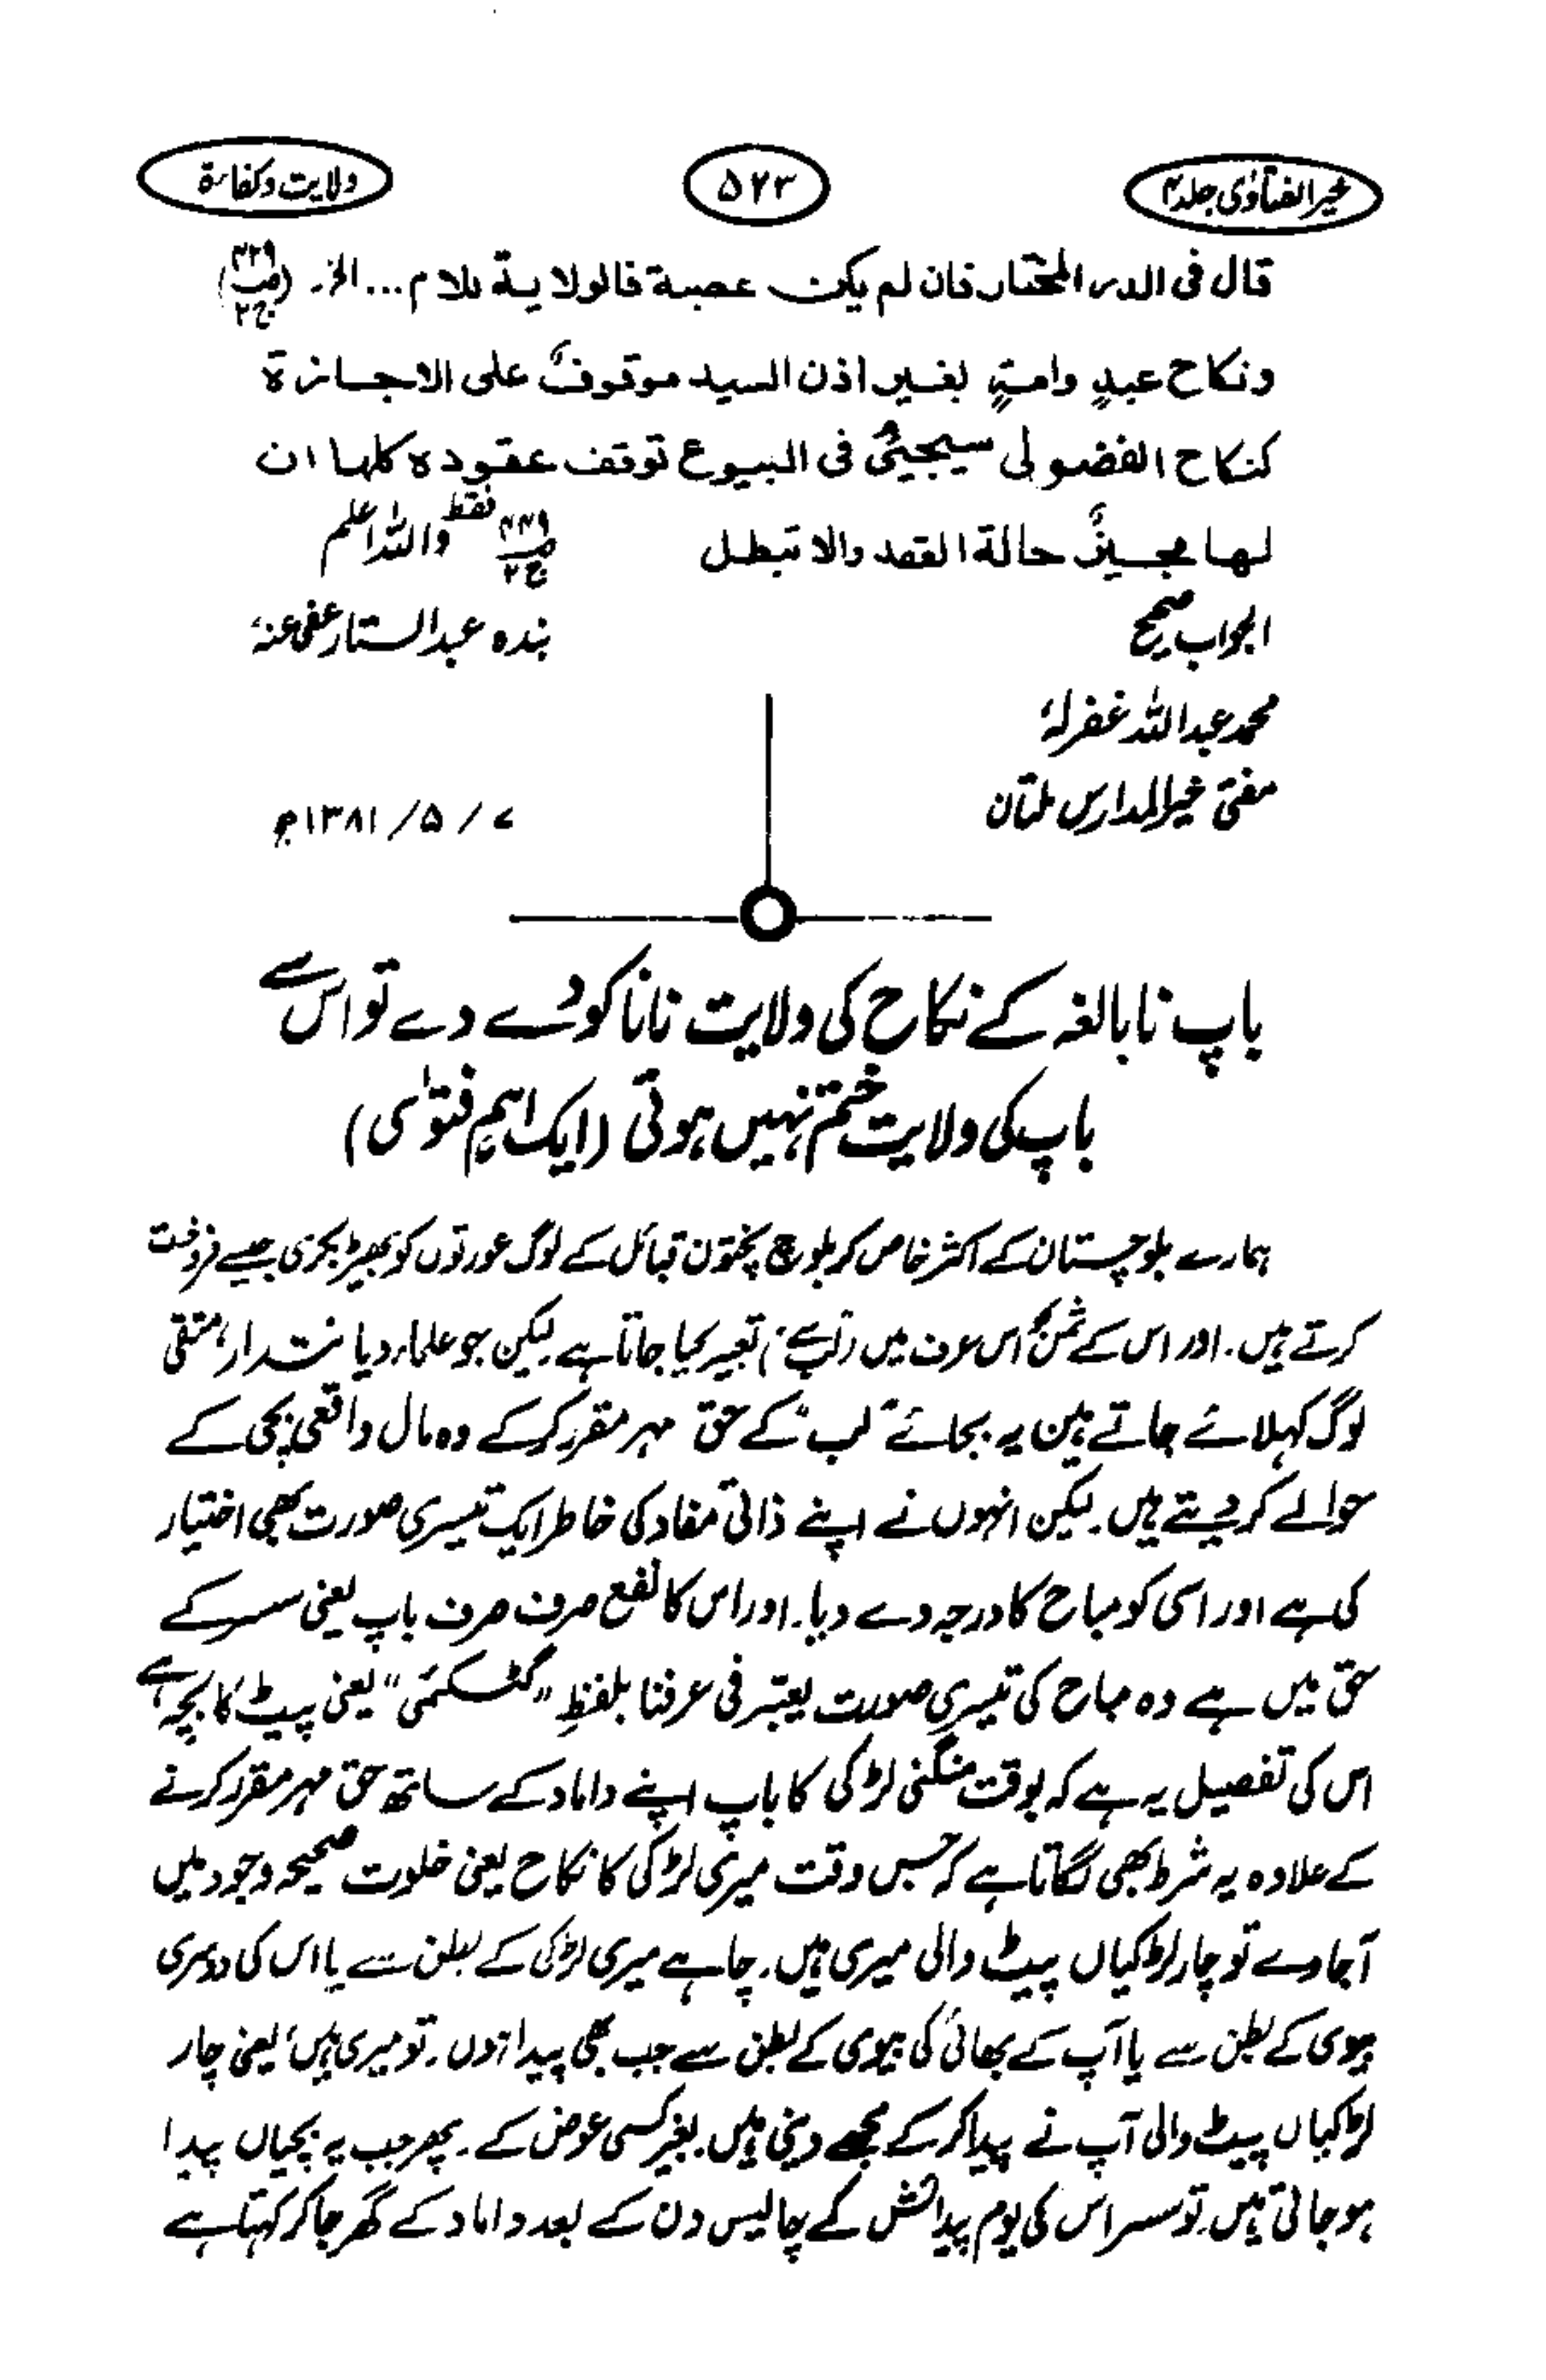 خیر الفتاوٰی جلد ۴
۵۲۳
ولایت و کفاءۃ
قال فی الدر المختار فان لم یکن عصبة فالولایة للام ... الخ۔ (ص ۴۲۹ ج ۲)
ونکاح عبدٍ وامةٍ بغیر اذن السید موقوفٌ علی الاجازة
کنکاح الفضولی سیجیئُ فی البیوع توقف عقوده کلها ان
لها مجیزٌ حالة العقد والا تبطل ص ۴۴۹ ج ۲ فقط واللہ اعلم
الجواب صحیح
بندہ عبدالستار عفی عنہ
محمد عبداللہ غفرلہٗ
مفتی خیرالمدارس ملتان
۷ / ۵ / ۱۳۸۱ھ
باپ نابالغہ کے نکاح کی ولایت نانا کو دے دے تو اس سے
باپ کی ولایت ختم نہیں ہوتی (ایک اہم فتوٰی)
ہمارے بلوچستان کے اکثر خاص کر بلوچ پختون قبائل کے لوگ عورتوں کو بھیڑ بکری جیسے فروخت
کرتے ہیں۔ اور اس کے ثمن کو اس عرف میں (لب) تعبیر کیا جاتا ہے لیکن جو علماء دیانتدار، متقی
لوگ کہلائے جاتے ہیں یہ بجائے "لب" کے حق مہر مقرر کرکے وہ مال واقعی بچی کے
حوالے کر دیتے ہیں۔ لیکن انہوں نے اپنے ذاتی مفاد کی خاطر ایک تیسری صورت بھی اختیار
کی ہے اور اسی کو مباح کا درجہ دے دیا۔ اور اس کا نفع صرف صرف باپ یعنی سسر کے
حق میں ہے وہ مباح کی تیسری صورت یعتبر فی عرفنا بلفظِ "گٹسکمئی" یعنی پیٹ کا بچہ ہے
اس کی تفصیل یہ ہے کہ بوقت منگنی لڑکی کا باپ اپنے داماد کے ساتھ حق مہر مقرر کرنے
کے علاوہ یہ شرط بھی لگاتا ہے کہ جس وقت میری لڑکی کا نکاح یعنی خلوت صحیحہ وجود میں
آجاوے تو چار لڑکیاں پیٹ والی میری ہیں۔ چاہے میری لڑکی کے بطن سے یا اس کی دوسری
بیوی کے بطن سے یا آپ کے بھائی کی بیوی کے بطن سے جب بھی پیدا ہوں۔ تو میری ہیں، یعنی چار
لڑکیاں پیٹ والی آپ نے پیدا کرکے مجھے دینی ہیں۔ بغیر کسی عوض کے۔ پھر جب یہ بچیاں پیدا
ہو جاتی ہیں۔ تو سسر اس کی یوم پیدائش کے چالیس دن کے بعد داماد کے گھر جا کر کہتا ہے